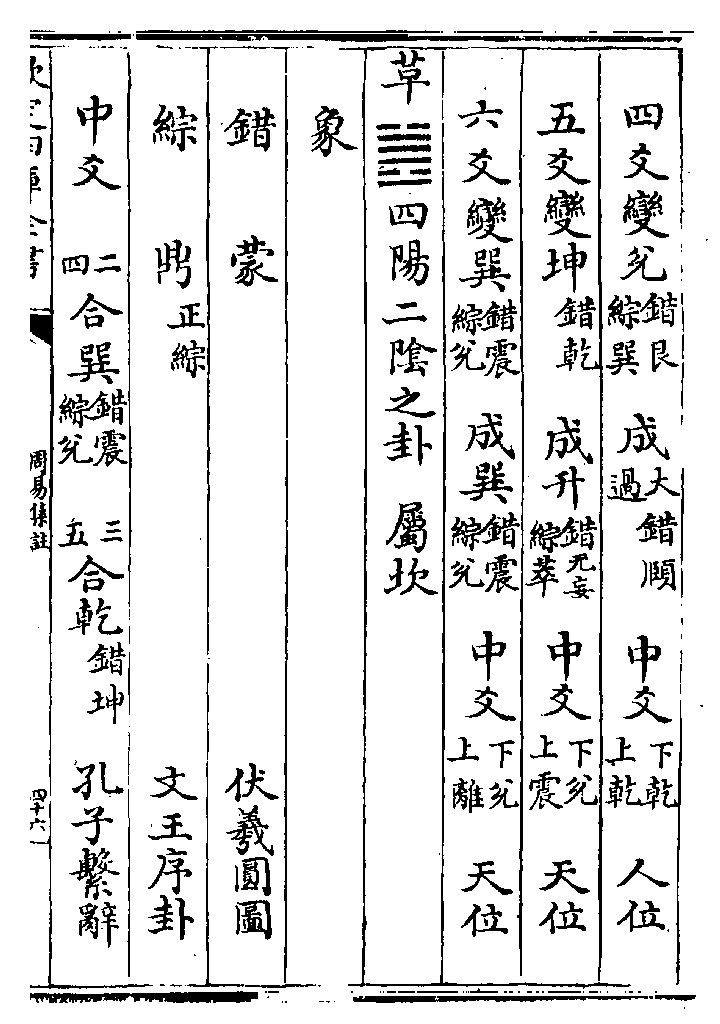 四爻變兌錯艮綜巽 成大過錯頤 中爻下乾上乾 人位
五爻變坤錯乾 成升錯无妄綜萃 中爻下兌上震 天位
六爻變巽錯震綜兌 成巽錯震綜兌 中爻下兌上離 天位
革䷰四陽二陰之卦 屬坎
象
錯 蒙 伏羲圓圖
綜 鼎正綜 文王序卦
中爻 二四合巽錯震綜兌 三五合乾錯坤 孔子繫辭
欽定四庫全書 周易集註 四十六